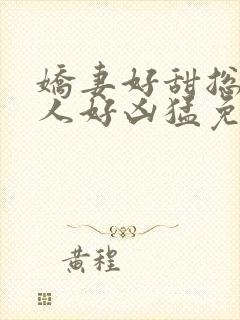 嬌妻好甜総
人好凶猛免
黃程